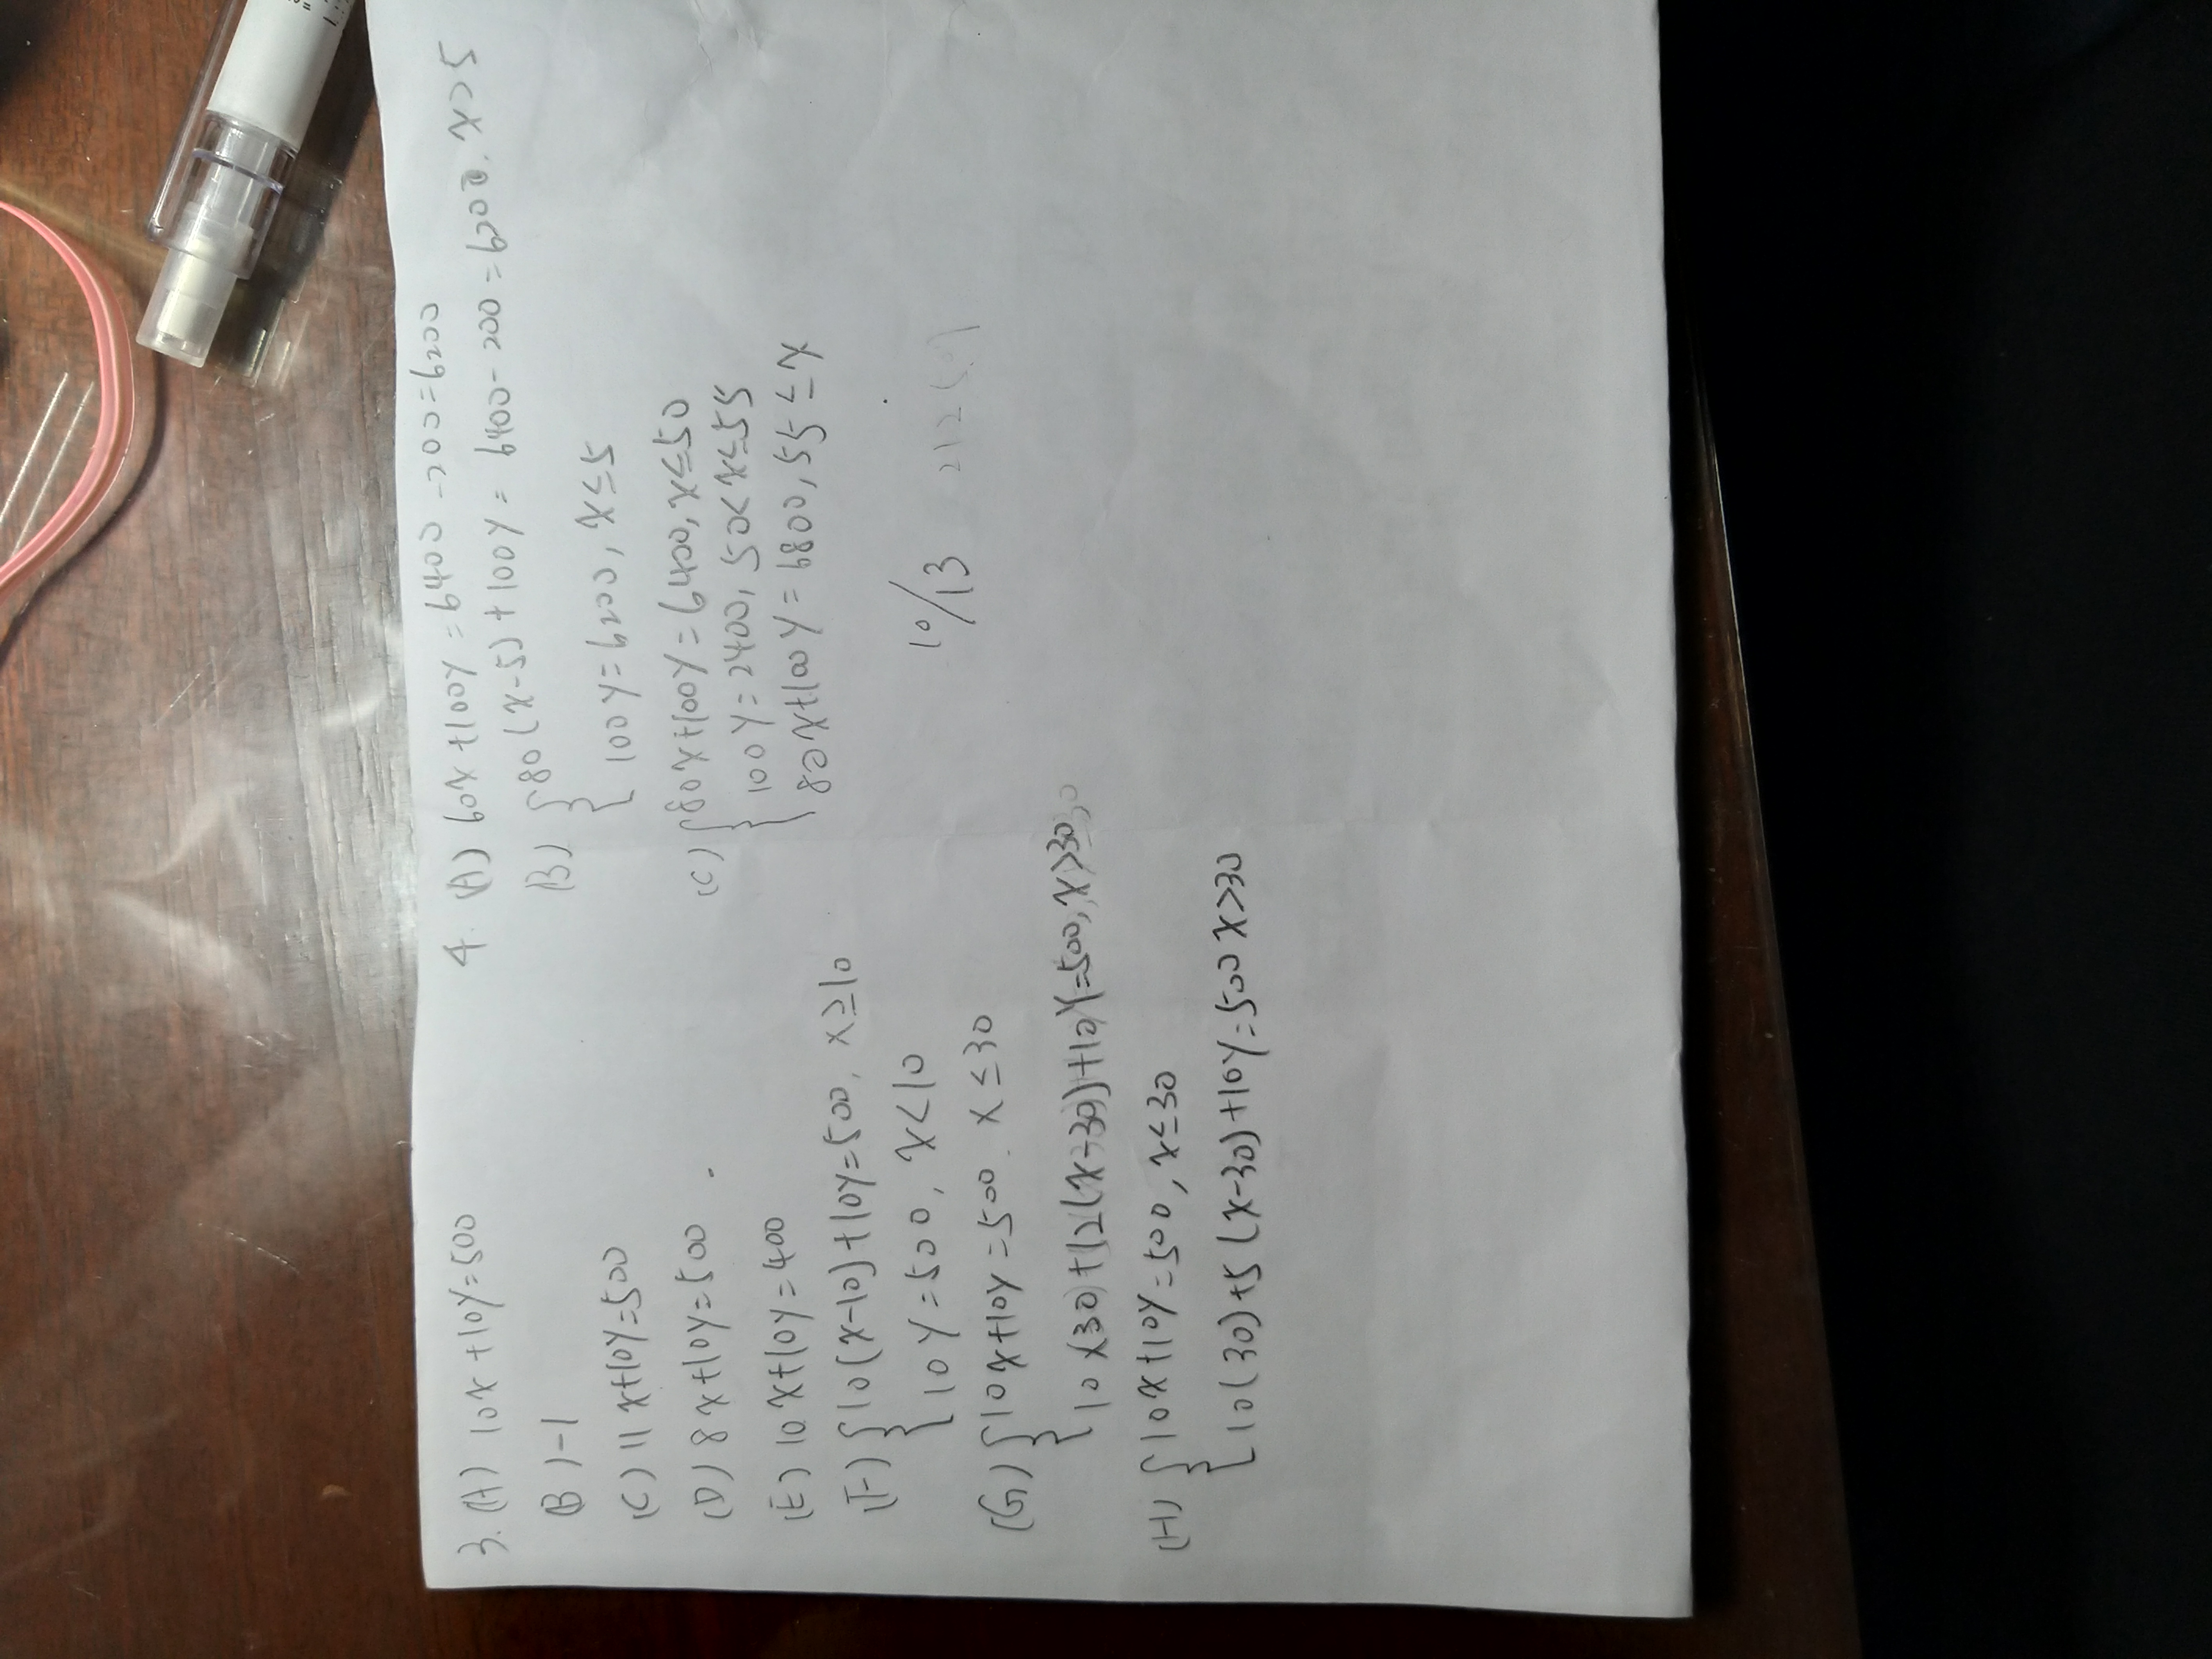 3. (A) 10x+10y=500
(B) -1
(C) 11x+10y=500
(D) 8x+10y=500
(E) 10x+10y=400
(F) { 10(x-10)+10y=500, x≥10
10y=500, x<10
(G) { 10x+10y=500. x≤30
10x30+12(x-30)+10y=500, x>30
(H) { 10x+10y=500, x≤30
10(30)+5(x-30)+10y=500 x>30
4. (A) 60x+100y=6400-200=6200
(B) { 80(x-5)+100y=6400-200=6200. x>5
100y=6200, x≤5
(C) { 80x+100y=6400, x≤50
100y=2400, 50<x≤55
80x+100y=6800, 55≤x
10/13